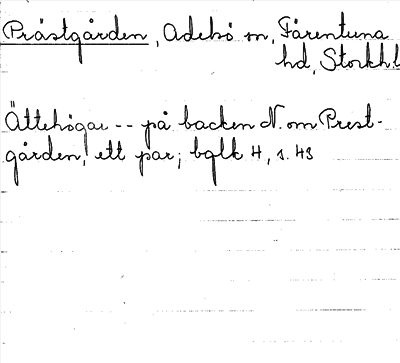 Prästgården, Adelsö sn, Färentuna
hd, Stockh.l
Ättehögar -- på backen N. om Prest-
gården, ett par; bglk 4, s. 43